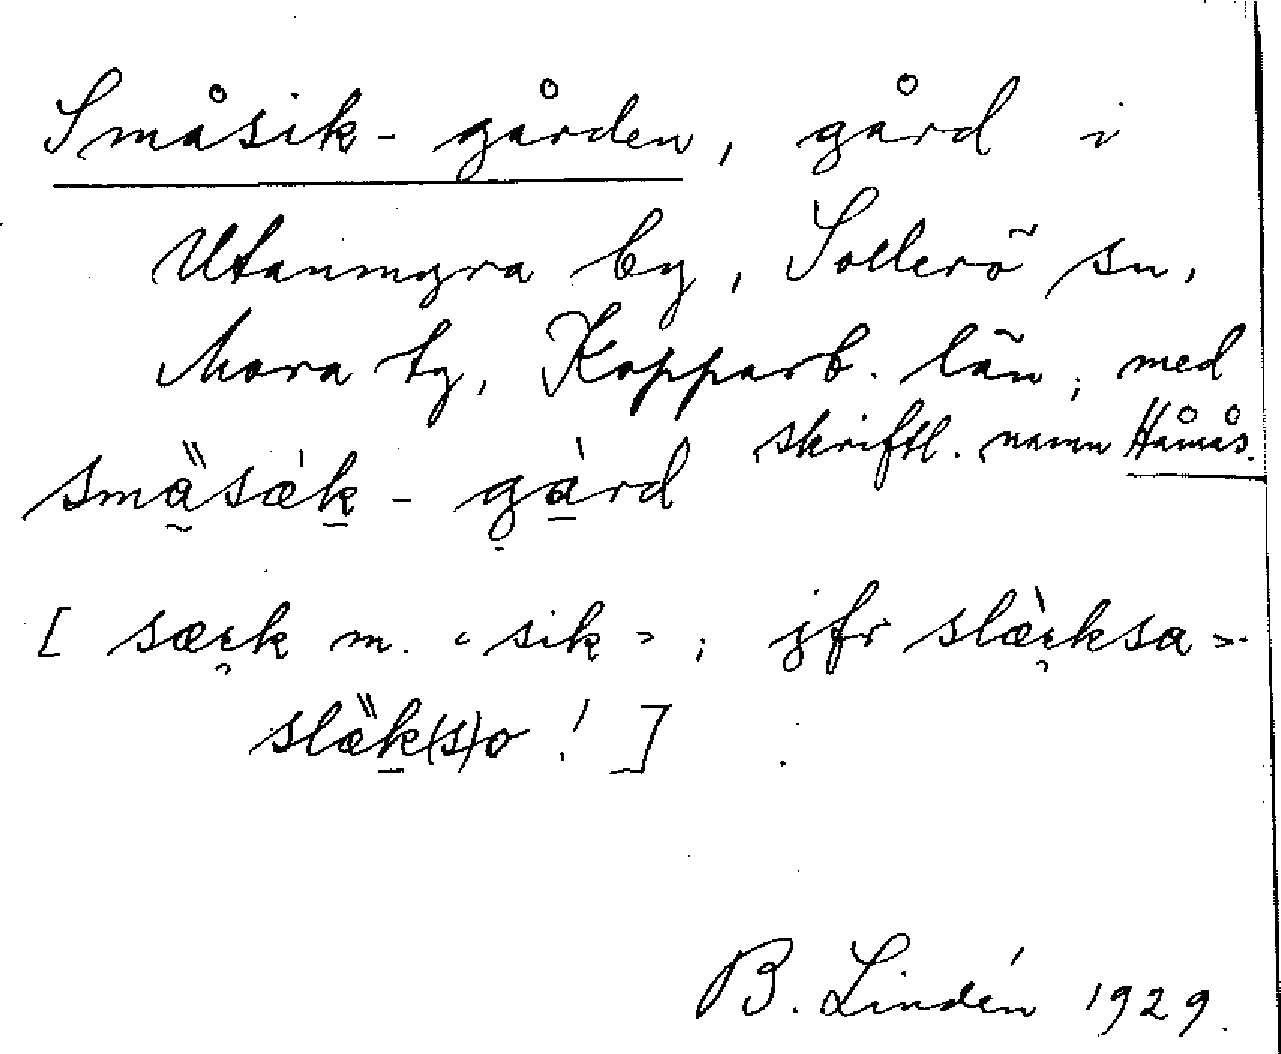 Småsik-gården, gård i
Utanmyra by, Sollerö sn,
Mora tg, Kopparb. län; med
skriftl. namn Håmås.
sma̰̎sæ̀k̠-gà̠rd
[ sæɛ̨k m. "sik"; jfr slæ̀ɛ̨ksa >
slæ̎k̠(s)o ! ]
B. Lindén 1929.